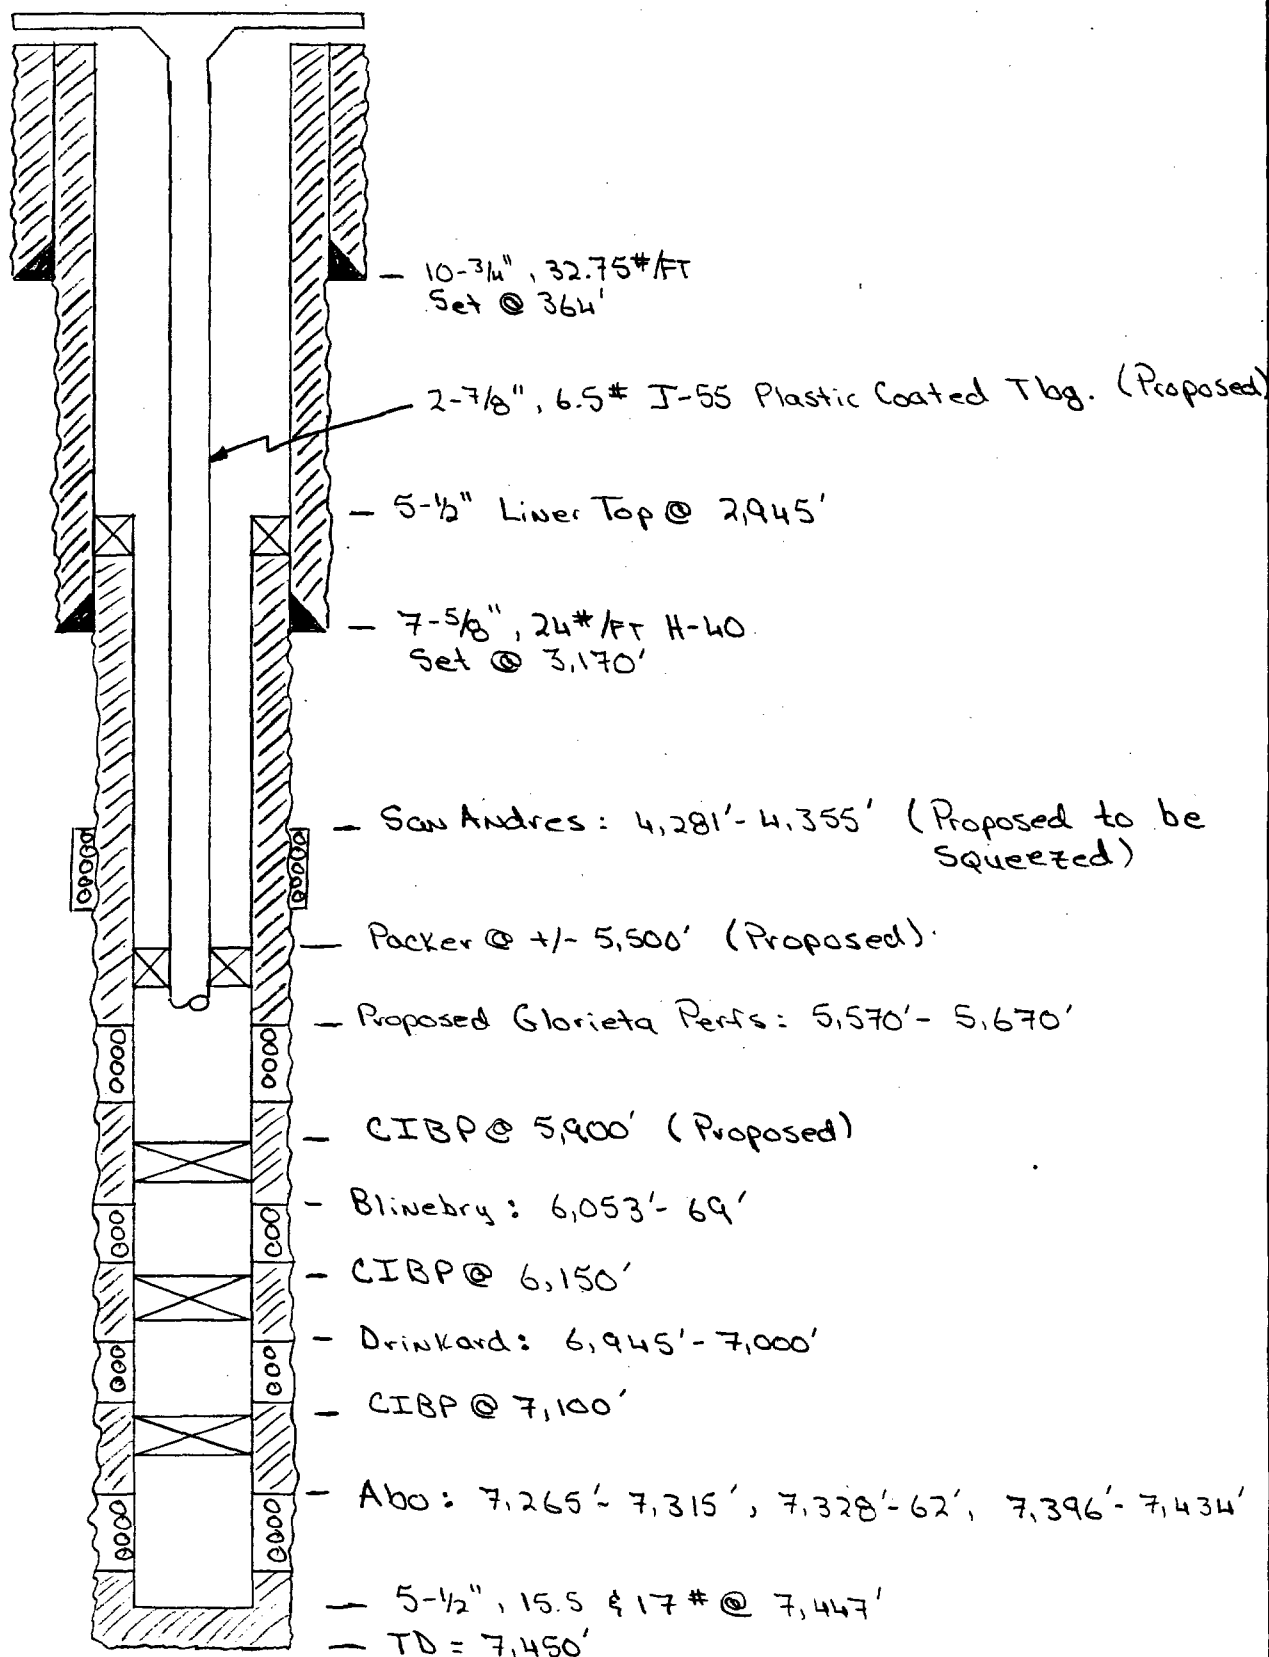 10-3/4", 32.75#/FT
Set @ 364'
2-7/8", 6.5# J-55 Plastic Coated Tbg. (Proposed)
5-1/2" Liner Top @ 2,945'
7-5/8", 24#/FT H-40
Set @ 3,170'
San Andres: 4,281'-4,355' (Proposed to be
Squeezed)
Packer @ +/- 5,500' (Proposed)
Proposed Glorieta Perfs: 5,570'-5,670'
CIBP @ 5,900' (Proposed)
Blinebry: 6,053'-69'
CIBP @ 6,150'
Drinkard: 6,945'-7,000'
CIBP @ 7,100'
Abo: 7,265'-7,315', 7,328'-62', 7,396'-7,434'
5-1/2", 15.5 & 17# @ 7,447'
TD = 7,450'